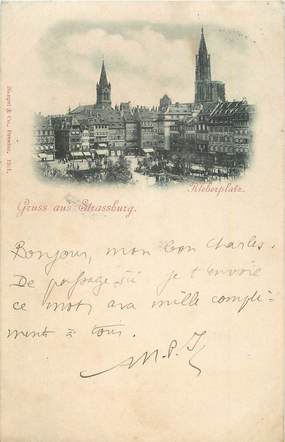 Kleberplatz.
Gruss aus Strassburg.
Stengel & Co., Dresden,
Bonjour, mon bon Charles.
De passage ici je t'envoie
ce mot, mille compli-
ment à tous.
M.P.